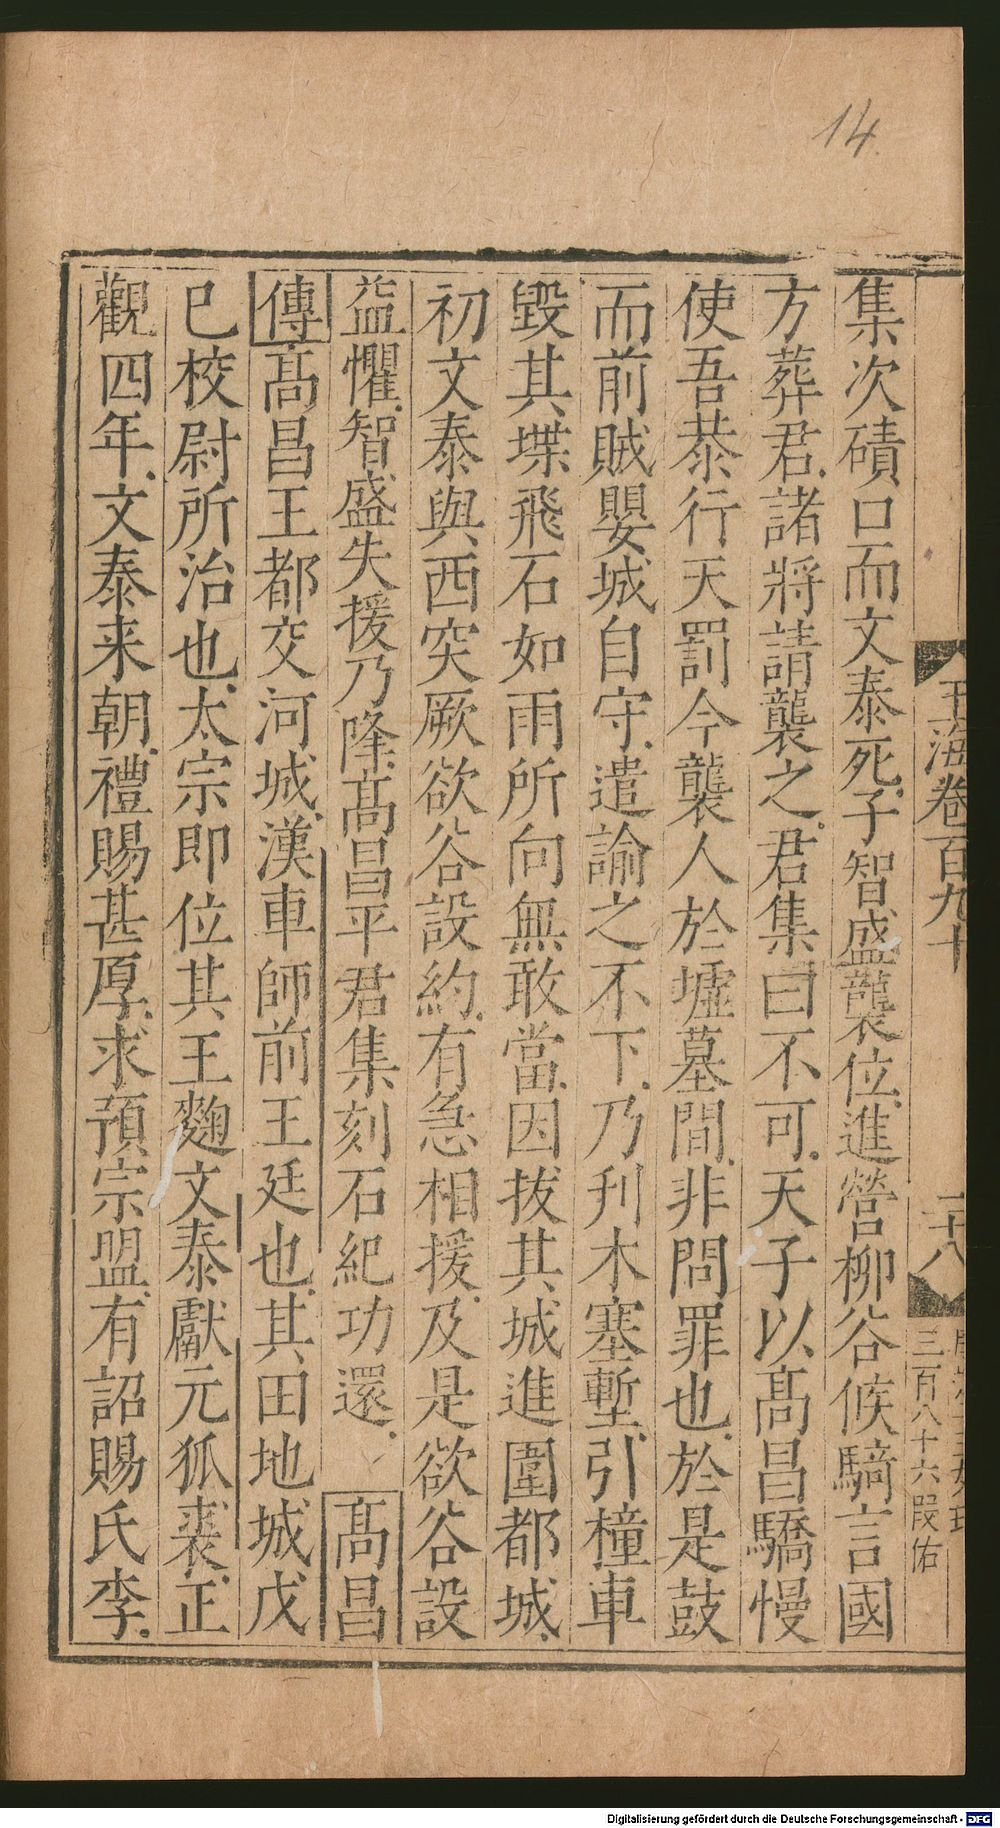 14
玉海卷百九十
二十八
三百八十六段佑
集次磧口而文泰死子智盛襲位進營柳谷候騎言國
方葬君諸將請襲之君集曰不可天子以髙昌驕慢
使吾恭行天罰今襲人於墟墓間非問罪也於是鼓
而前賊嬰城自守遣諭之不下乃刋木塞塹引橦車
毀其堞飛石如雨所向無敢當因拔其城進圍都城
初文泰與西突厥欲谷設約有急相援及是欲谷設
益懼智盛失援乃降髙昌平君集刻石紀功還 髙昌
傳髙昌王都交河城漢車師前王廷也其田地城戊
已校尉所治也太宗即位其王麴文泰獻元狐裘正
觀四年文泰来朝禮賜甚厚求預宗盟有詔賜氏李
Digitalisierung gefördert durch die Deutsche Forschungsgemeinschaft - DFG